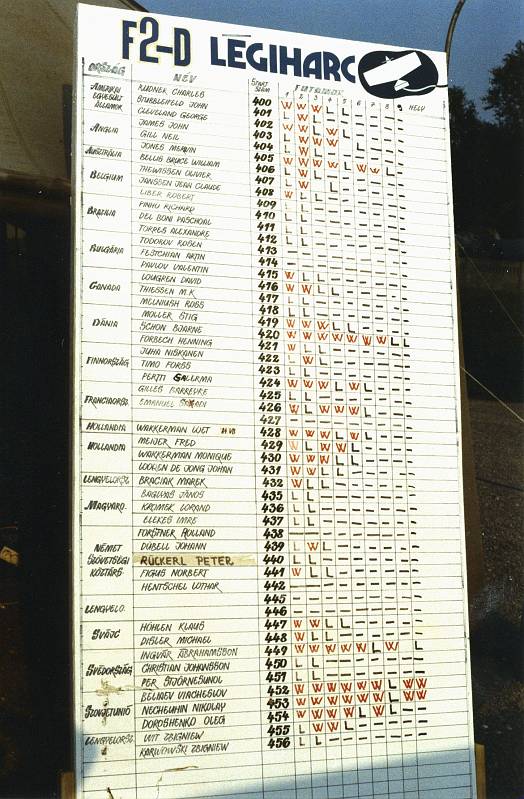 F2-D LÉGIHARC
ORSZÁG NÉV START SZÁM FUTAMOK HELY
1 2 3 4 5 6 7 8 9
AMERIKAI EGYESÜLT ÁLLAMOK
RUDNER CHARLES 400 W W W L L
STUBBLEFIELD JOHN 401
CLEVELAND GEORGE 402
ANGLIA
JAMES JOHN 403
GILL NEIL 404
JONES MERVIN 405
AUSZTRÁLIA
BELLIS BRUCE WILLIAM 406
BELGIUM
THEWISSEN OLIVIER 407
JANSSEN JEAN CLAUDE 408
LIBER ROBERT 409 L L
BRAZILIA
PINHO RICHARD 410 L L
DEL BONI PASCHOAL 411 L L
TORRES ALEXANDRE 412 L L
BULGÁRIA
TODOROV ROSEN 413 — —
FESTCHIAN ARTIN 414 — —
PAVLOV VALENTIN 415 W L
CANADA
LOUGREN DAVID 416 W W L L
THIESSEN M.K 417 L L
MCLNIUSH ROSS 418 L L
DÁNIA
MOLLER STIG 419 W W W L L
SCHON BJARNE 420 W W W W W W W L L
FORBECH HENNING 421 W L L
FINNORSZÁG
JUHA NISKANEN 422 L W L
TIMO FORSS 423 L L
PERTTI SALERMA 424 W W W L W L
FRANCIAORSZ.
GILLES BARREYRE 425 L L
EMANUEL 426 W W W L W L
427 — —
HOLLANDIA WAKKERMAN LOET 428 W W W L W L
HOLLANDIA MEIJER FRED 429 W L W W L
WAKKERMAN MONIQUE 430 W W W L L
LOOREN DE JONG JOHAN 431 W W L L
LENGYELORSZ. BRACIAK MAREK 432 W L L
MAGYARO.
BAGYAS JÁNOS 435 L L
KROMEK LORAND 436 L L
ELEKES IMRE 437 L L
FORSTNER ROLLAND 438
NÉMET SZÖVETSÉGI KÖZTÁRS.
DÜBELL JOHANN 439 L W L
RÜCKERL PETER 440 L L
FIGUS NORBERT 441 W L L
HENTSCHEL LOTHAR 442 — —
445 — —
LENGYELO. 446 — —
SVÁJC
HÖHLEN KLAUS 447 W W L L
DISLER MICHAEL 448 W L L
SVÉDORSZÁG
INGVAR ABRAHAMSSON 449 W W W W W L W L
CHRISTIAN JOHANSSON 450 L L
PER STJÖRNESUND 451 L L
SZOVJETUNIÓ
BELIAEV VIACHESLOV 452 W W W W W W L W W
NECHEUHIN NIKOLAY 453 W W W W W W L W W
DOROSHENKO OLEG 454 W W W W L W L
LENGYELORSZ.
WIT ZBIGNIEW 455 L W W L
KARWOWSKI ZBIGNIEW 456 L L